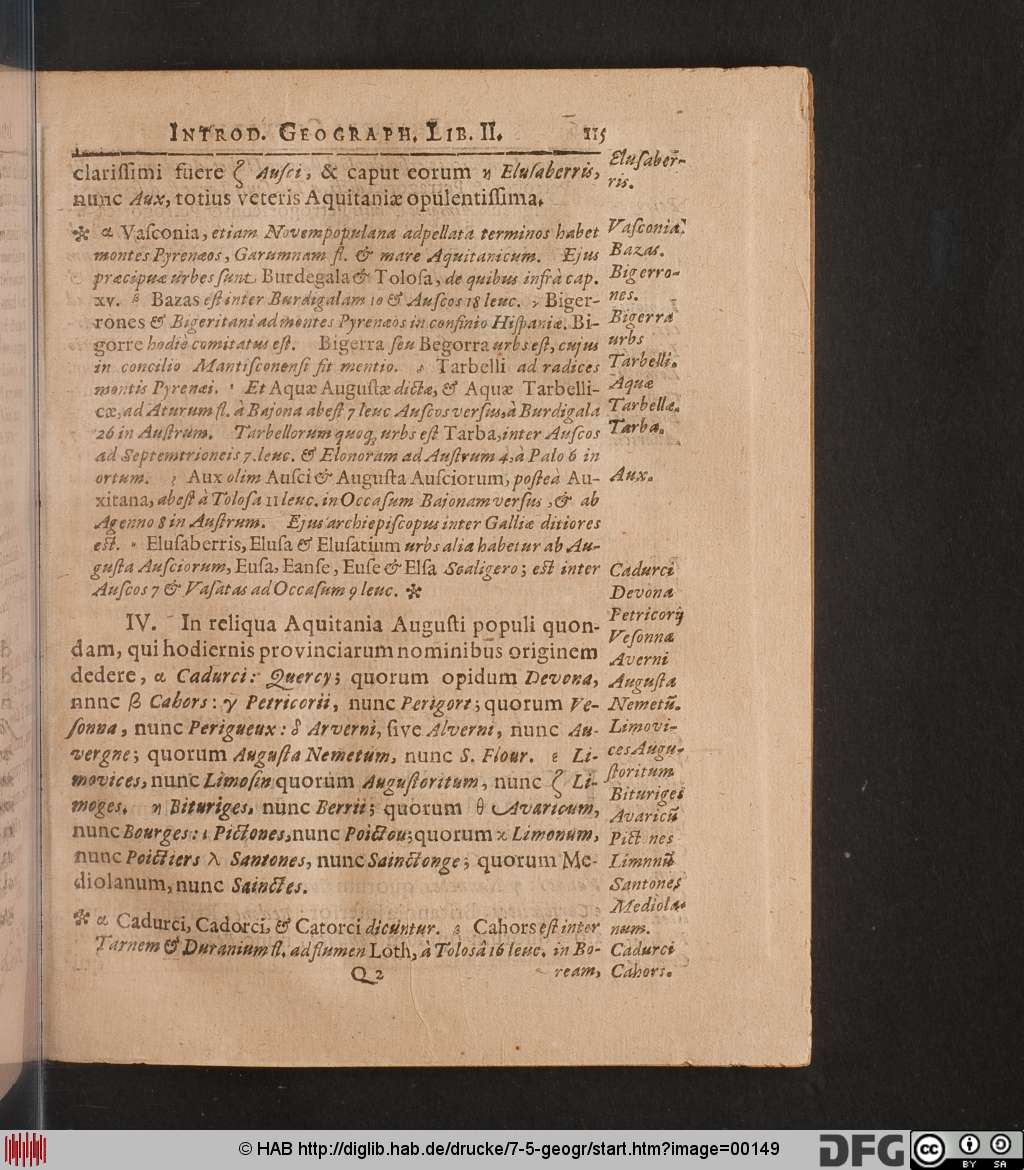 INTROD. GEOGRAPH. LIB. II. 115
clarissimi fuere ζ Ausci, & caput eorum η Elusaberris,
nunc Aux, totius veteris Aquitaniæ opulentissima.
✻ α Vasconia, etiam Novempopulana adpellata terminos habet
montes Pyrenæos, Garumnam fl. & mare Aquitanicum. Ejus
præcipuæ urbes sunt Burdegala & Tolosa, de quibus infrà cap.
xv. β Bazas est inter Burdigalam 10 & Auscos 18 leuc. γ Biger-
rones & Bigeritani ad montes Pyrenæos in confinio Hispaniæ. Bi-
gorre hodie comitatus est. Bigerra seu Begorra urbs est, cujus
in concilio Mantisconensi fit mentio. δ Tarbelli ad radices
montis Pyrenæi. ε Et Aquæ Augustæ dictæ, & Aquæ Tarbelli-
cæ, ad Aturum fl. à Bajona abest 7 leuc Auscos versus, à Burdigala
26 in Austrum. Tarbellorum quoq; urbs est Tarba, inter Auscos
ad Septemtrioneis 7. leuc. & Elonoram ad Austrum 4, à Palo 6 in
ortum. ζ Aux olim Ausci & Augusta Ausciorum, posteà Au-
xitana, abest à Tolosa 11 leuc. in Occasum Bajonam versus, & ab
Agenno 8 in Austrum. Ejus archiepiscopus inter Galliæ ditiores
est. η Elusaberris, Elusa & Elusatium urbs alia habetur ab Au-
gusta Ausciorum, Eusa, Eanse, Euse & Elsa Scaligero; est inter
Auscos 7 & Vasatas ad Occasum 9 leuc. ✻
IV. In reliqua Aquitania Augusti populi quon-
dam, qui hodiernis provinciarum nominibus originem
dedere, α Cadurci: Quercy; quorum opidum Devona,
nnnc β Cahors: γ Petricorii, nunc Perigort; quorum Ve-
sonna, nunc Perigueux: δ Arverni, sive Alverni, nunc Au-
vergne; quorum Augusta Nemetum, nunc S. Flour. ε Li-
movices, nunc Limosin quorum Augustoritum, nunc ζ Li-
moges. η Bituriges, nunc Berrii; quorum θ Avaricum,
nunc Bourges: ι Pictones, nunc Poictou; quorum κ Limonum,
nunc Poictiers λ Santones, nunc Sainctonge; quorum Me-
diolanum, nunc Sainctes.
✻ α Cadurci, Cadorci, & Catorci dicuntur. β Cahors est inter
Tarnem & Duranium fl. ad flumen Loth, à Tolosâ 16 leuc. in Bo-
Q 2 ream,
Elusaber-
ris.
Vasconia.
Bazas.
Bigerro-
nes.
Bigerra
urbs
Tarbelli.
Aquæ
Tarbellæ.
Tarba.
Aux.
Cadurci
Devona
Petricorij
Vesonna
Averni
Augusta
Nemetū.
Limovi-
ces Augu-
storitum
Bituriges
Avaricū
Pictones
Limnnū
Santones
Mediola-
num.
Cadurci
Cahors.
© HAB http://diglib.hab.de/drucke/7-5-geogr/start.htm?image=00149
DFG
cc BY SA